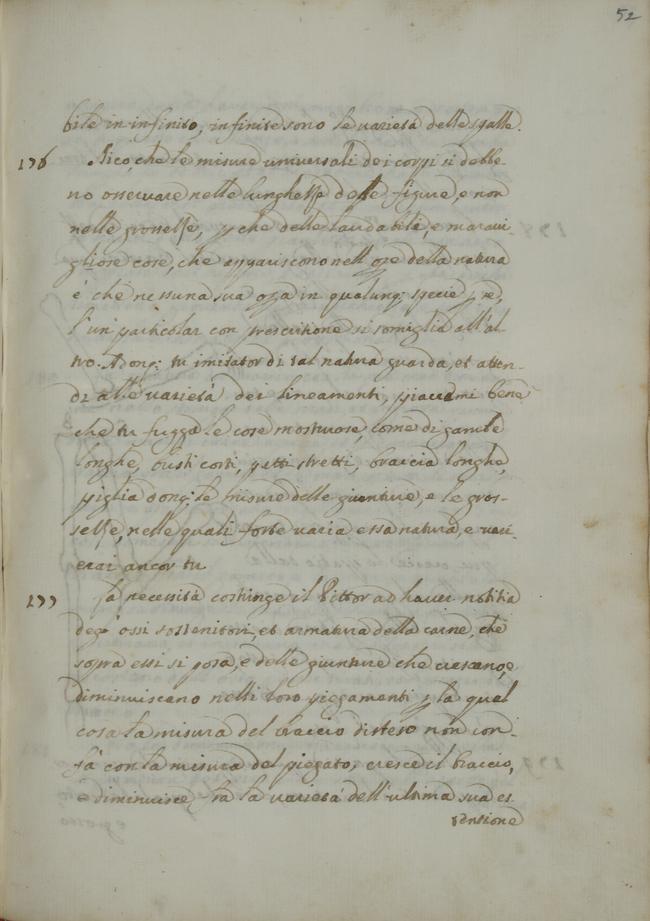 52
bile in infinito, infinite sono le varietà delle spalle.
176 Dico, che le misure universali dei corpi si debbe
no osservare nelle lunghesse delle figure, e non
nelle grossesse, p che delle laudabili, e maravi-
gliose cose, che appariscono nell'ope della natura
è che nessuna sua opa in qualunq; specie p se,
l'un particolar con prescitione si somiglia all'al
tro. Adonq; tu imitator di tal natura guarda, et atten-
di alle varietà dei lineamenti, piacemi bene
che tu fugga le cose mostruose, come di gambe
longhe, busti corti, petti stretti, braccia longhe,
piglia donq; le misure delle giunture, e le gros-
sesse, nelle quali forte varia essa natura, e vari-
erai ancor tu
177 La necessità costringe il Pittor ad haver notitia
degl'ossi sostenitori, et armatura della carne, che
sopra essi si posa, e delle giunture che crescano, e
diminuiscano nelli loro piegamenti p la qual
cosa la misura del braccio disteso non con-
fà con la misura del piegato, cresce il braccio,
e diminuisce fra la varietà dell'ultima sua es
tensione